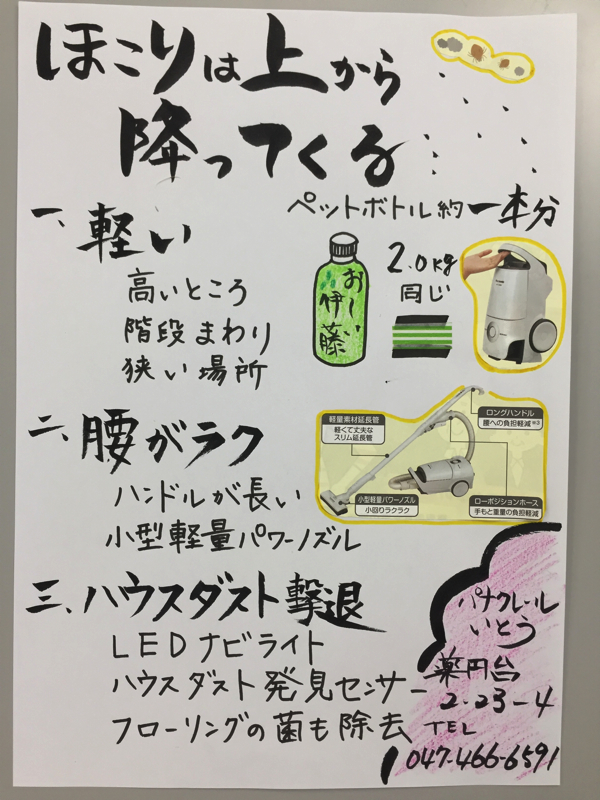 ほこりは上から
降ってくる
一、軽い
高いところ
階段まわり
狭い場所
ペットボトル約一本分
おーい
伊藤
2.0kg
同じ
二、腰がラク
ハンドルが長い
小型軽量パワーノズル
軽量素材延長管
軽くて丈夫な
スリム延長管
ロングハンドル
腰への負担軽減※3
小型軽量パワーノズル
小回りラクラク
ローポジションホース
手もと重量の負担軽減
三、ハウスダスト撃退
LEDナビライト
ハウスダスト発見センサー
フローリングの菌も除去
パナクレール
いとう
薬円台
2-23-4
TEL
047-466-6591